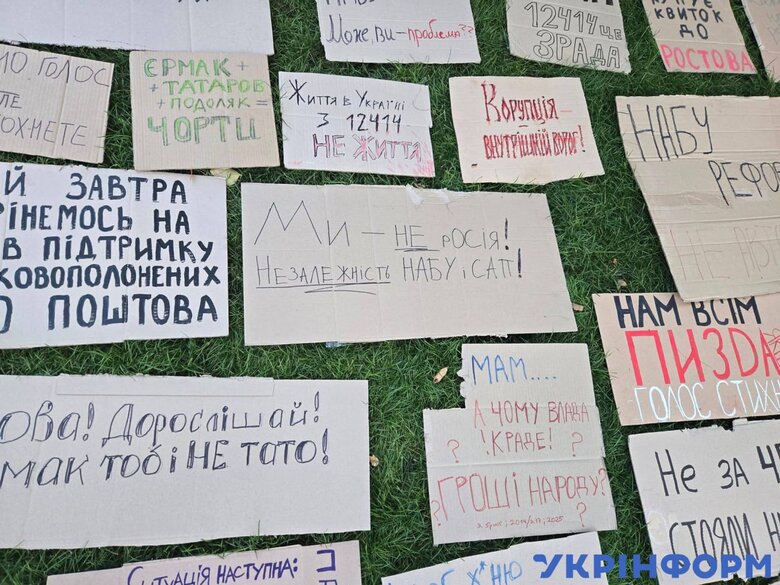 Може, ви - проблема??
12414 це
ЗРАДА
КВИТОК
ДО
РОСТОВА
ГОЛОС
ЄРМАК +
+ ТАТАРОВ
+ ПОДОЛЯК =
ЧОРТИ
Життя в Україні
з 12414
НЕ ЖИТТЯ
Корупція -
внутрішній ворог!
НАБУ
РЕФО
Й ЗАВТРА
РІНЕМОСЬ НА
В ПІДТРИМКУ
КОВОПОЛОНЕНИХ
ПОШТОВА
Ми - НЕ росія!
Незалежність НАБУ і САП!
НАМ ВСІМ
ПИЗДА
ГОЛОС СТИХ
ова! Дорослішай!
мак тобі НЕ тато!
МАМ....
А ЧОМУ ВЛАДА
КРАДЕ!
? ?
ГРОШІ НАРОДУ?
? ?
Не за
стояли
Ситуація наступна:
УКРІНФОРМ